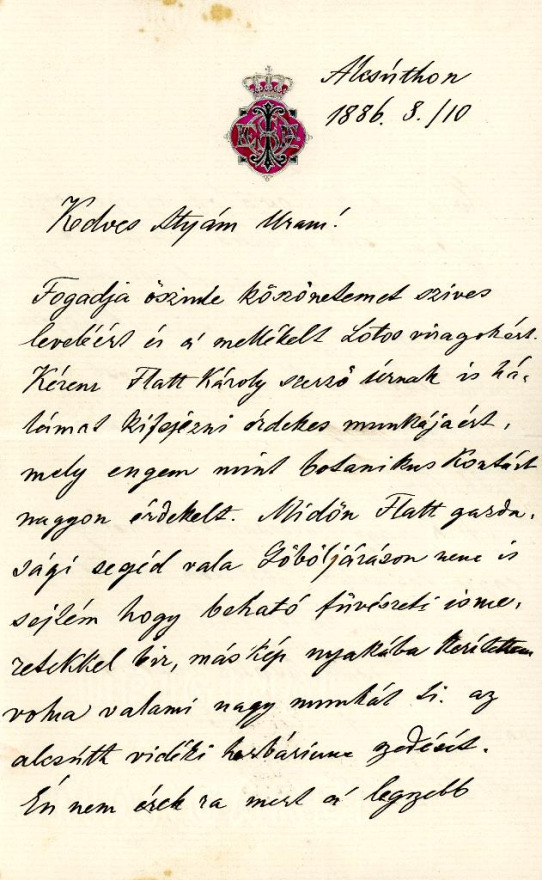 Alcsúthon
1886. 8./10
Kedves Atyám Uram!
Fogadja öszinte köszönetemet szives
leveléért és a' mellékelt Lotos viragokért.
Kérem Flatt Károly szerző úrnak is há-
lámat kifejezni érdekes munkájaért,
mely engem mint botanikus Kontárt
nagyon érdekelt. Midőn Flatt gazda-
sági segéd vala Göböljáráson nem is
sejtém hogy beható füvészeti isme-
retekkel bir, máskép nyakába kerítettem
volna valami nagy munkát t.i. az
alcsúth vidéki herbárium
Én nem érek ra mert a' legszebb